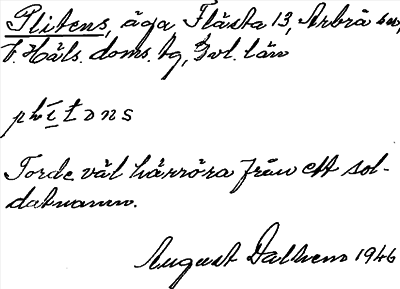 Plitens, äga Flästa 13, Arbrå sn,
V. Häls. doms. bg, Gvl. län
plìtɔns
Torde väl härröra från ett sol-
datnamn.
August Dalhem 1946